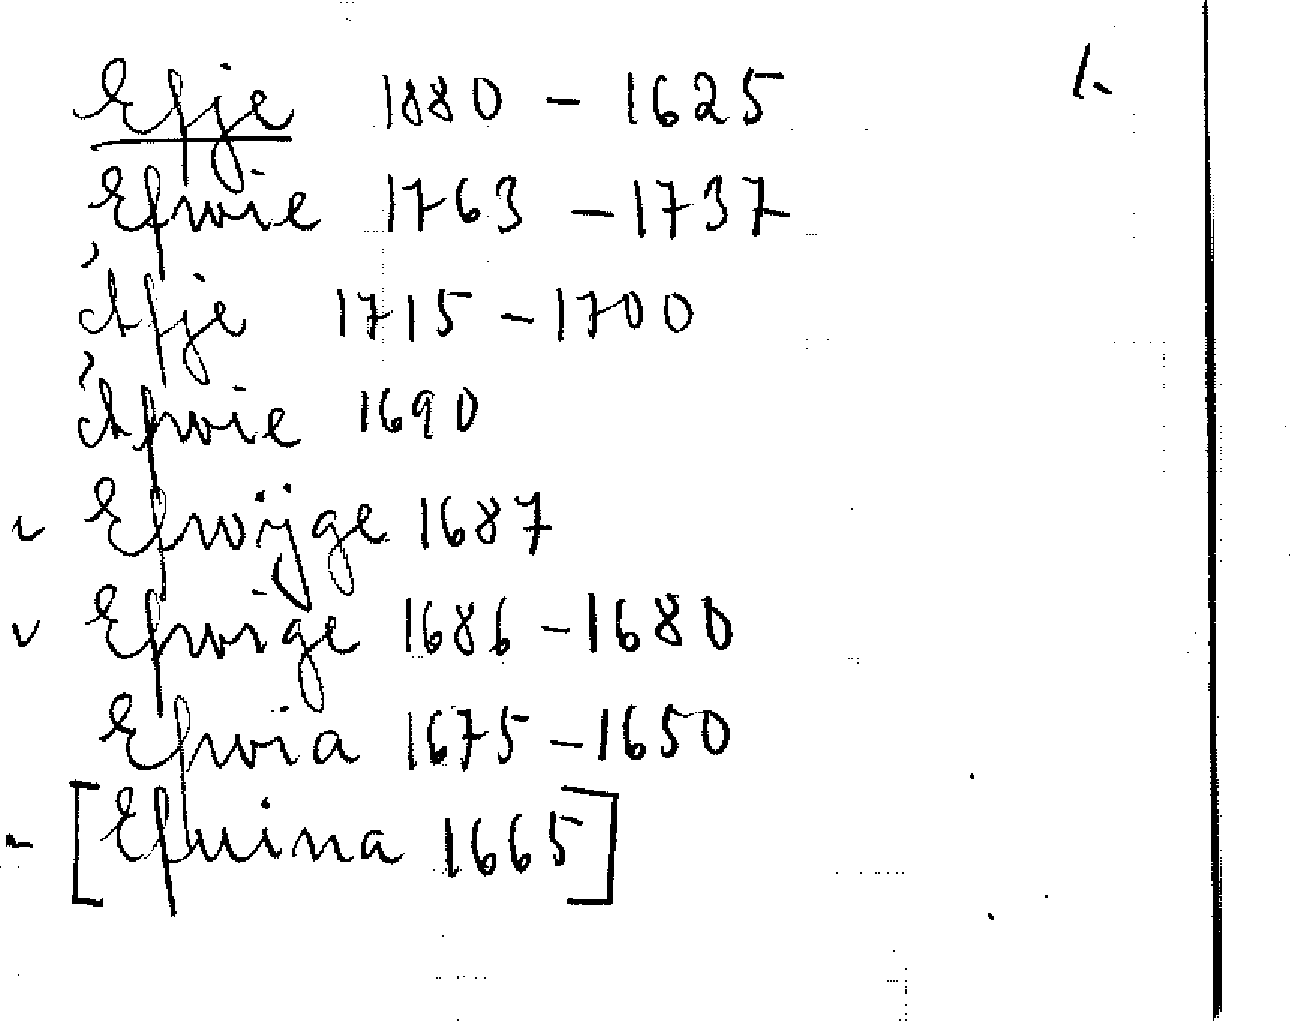 Efje 1880 - 1625
1.
Efwie 1763 - 1737
Afje 1715 - 1700
Afwie 1690
v Efwijge 1687
v Efwige 1686 - 1680
Efwia 1675 - 1650
- [Efuina 1665]